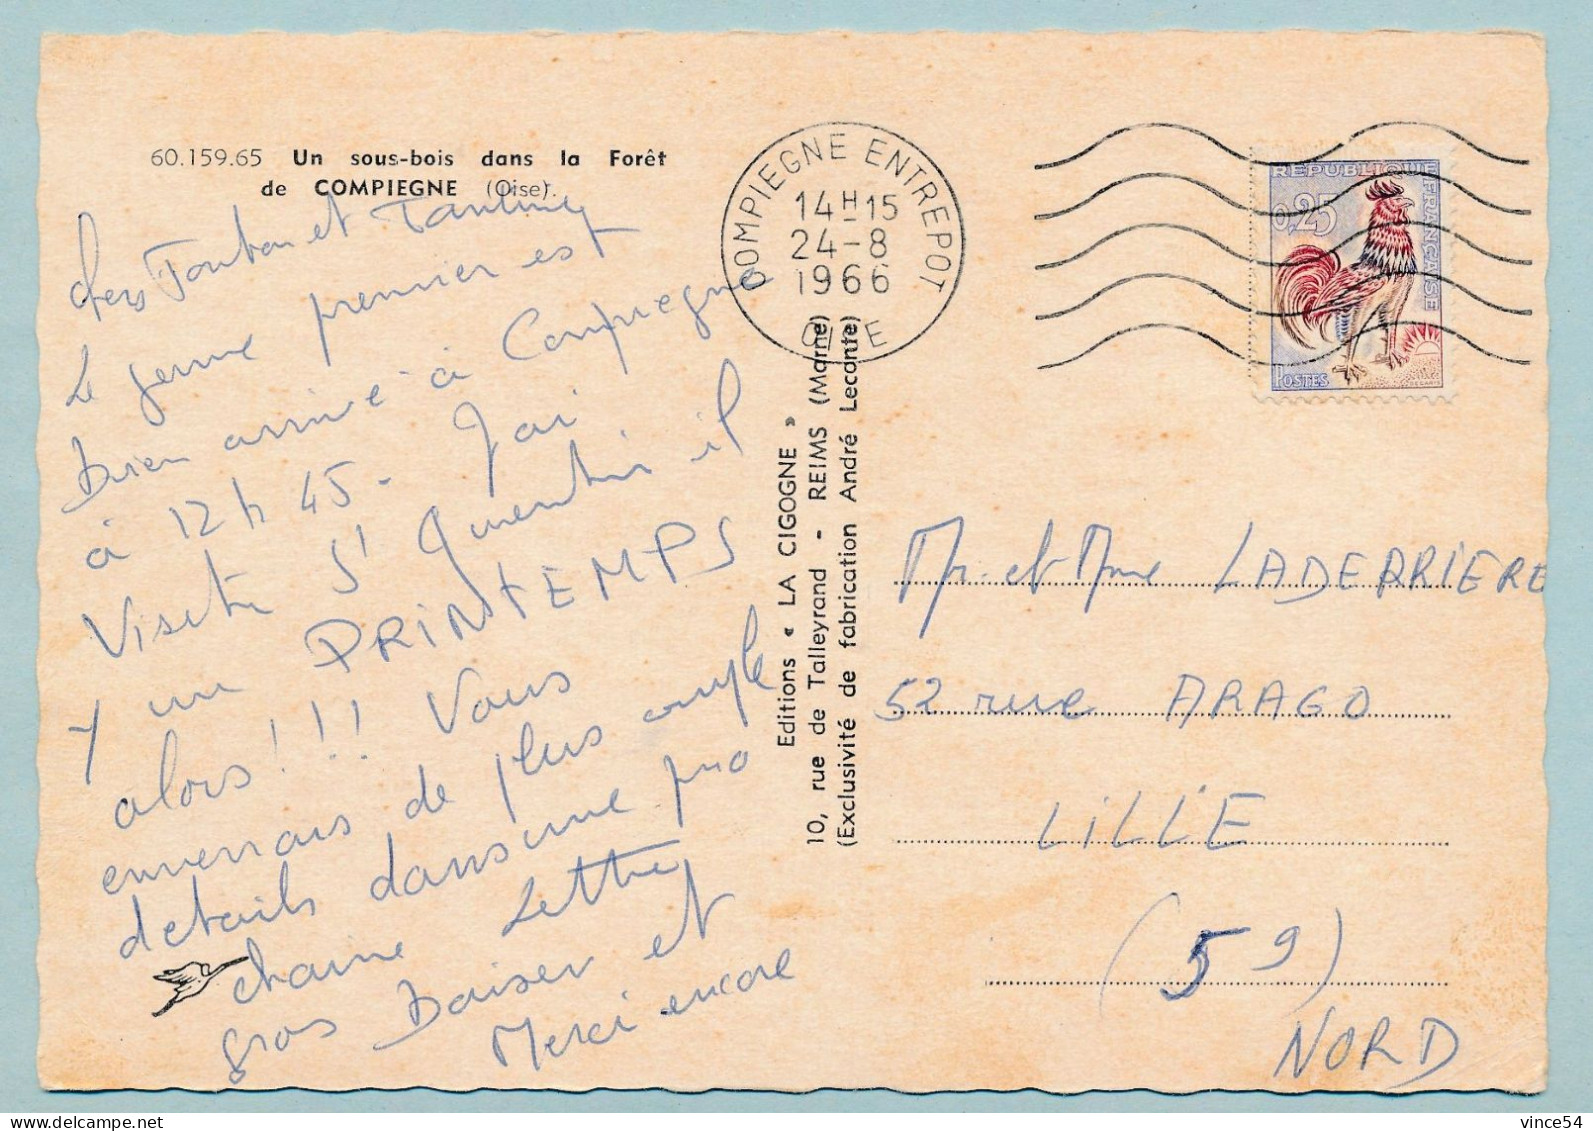 60.159.65 Un sous-bois dans la Forêt
de COMPIEGNE (Oise).
chers Tonton et Tantine
Le jeune premier est
bien arrivé à Compiegne
à 12 h 45. J'ai
Visité St Quentin il
y un PRINTEMPS
alors!!! Vous
enverrais de plus ample
details dans une pro
chaine Lettre
gros Baiser et
Merci encore
COMPIEGNE ENTREPOT
14H15
24-8
1966
OISE
REPUBLIQUE FRANÇAISE
0,25
POSTES
DECARIS
Editions « LA CIGOGNE »
10, rue de Talleyrand - REIMS (Marne)
(Exclusivité de fabrication André Leconte)
Mr. et Mme LADERRIERE
52 rue ARAGO
LILLE
(59)
NORD
vince54